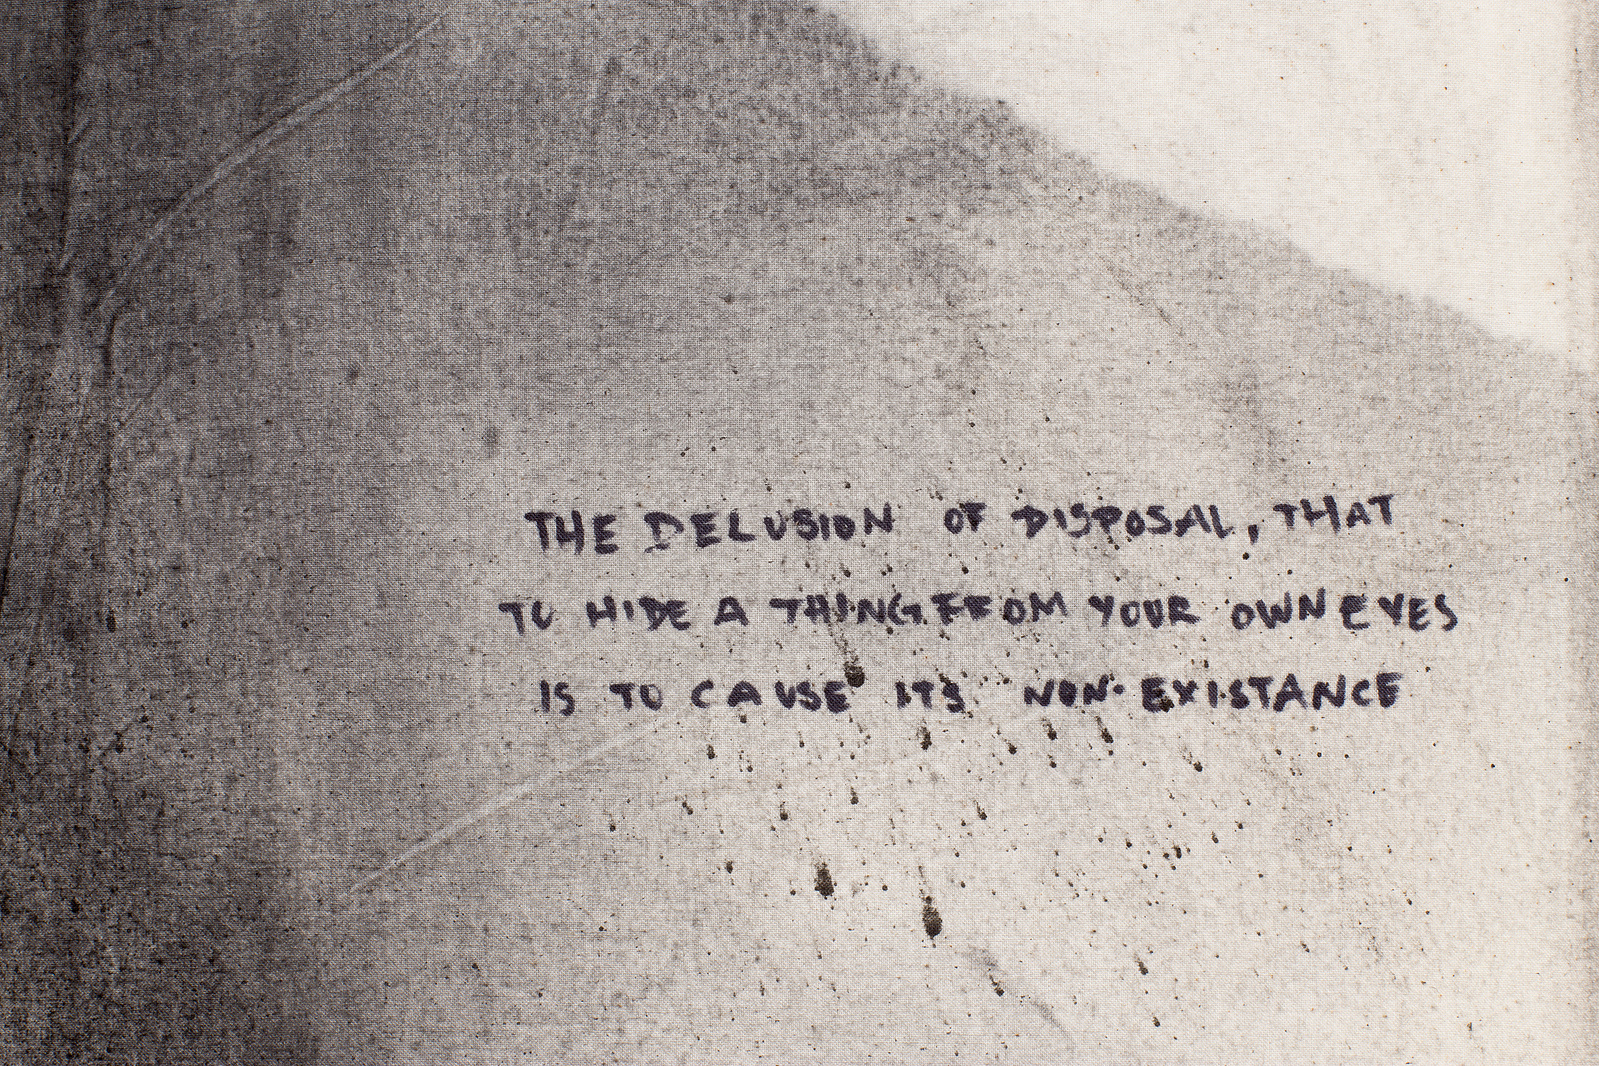 THE DELUSION OF DISPOSAL, THAT
TO HIDE A THING FROM YOUR OWN EYES
IS TO CAUSE ITS NON-EXISTANCE